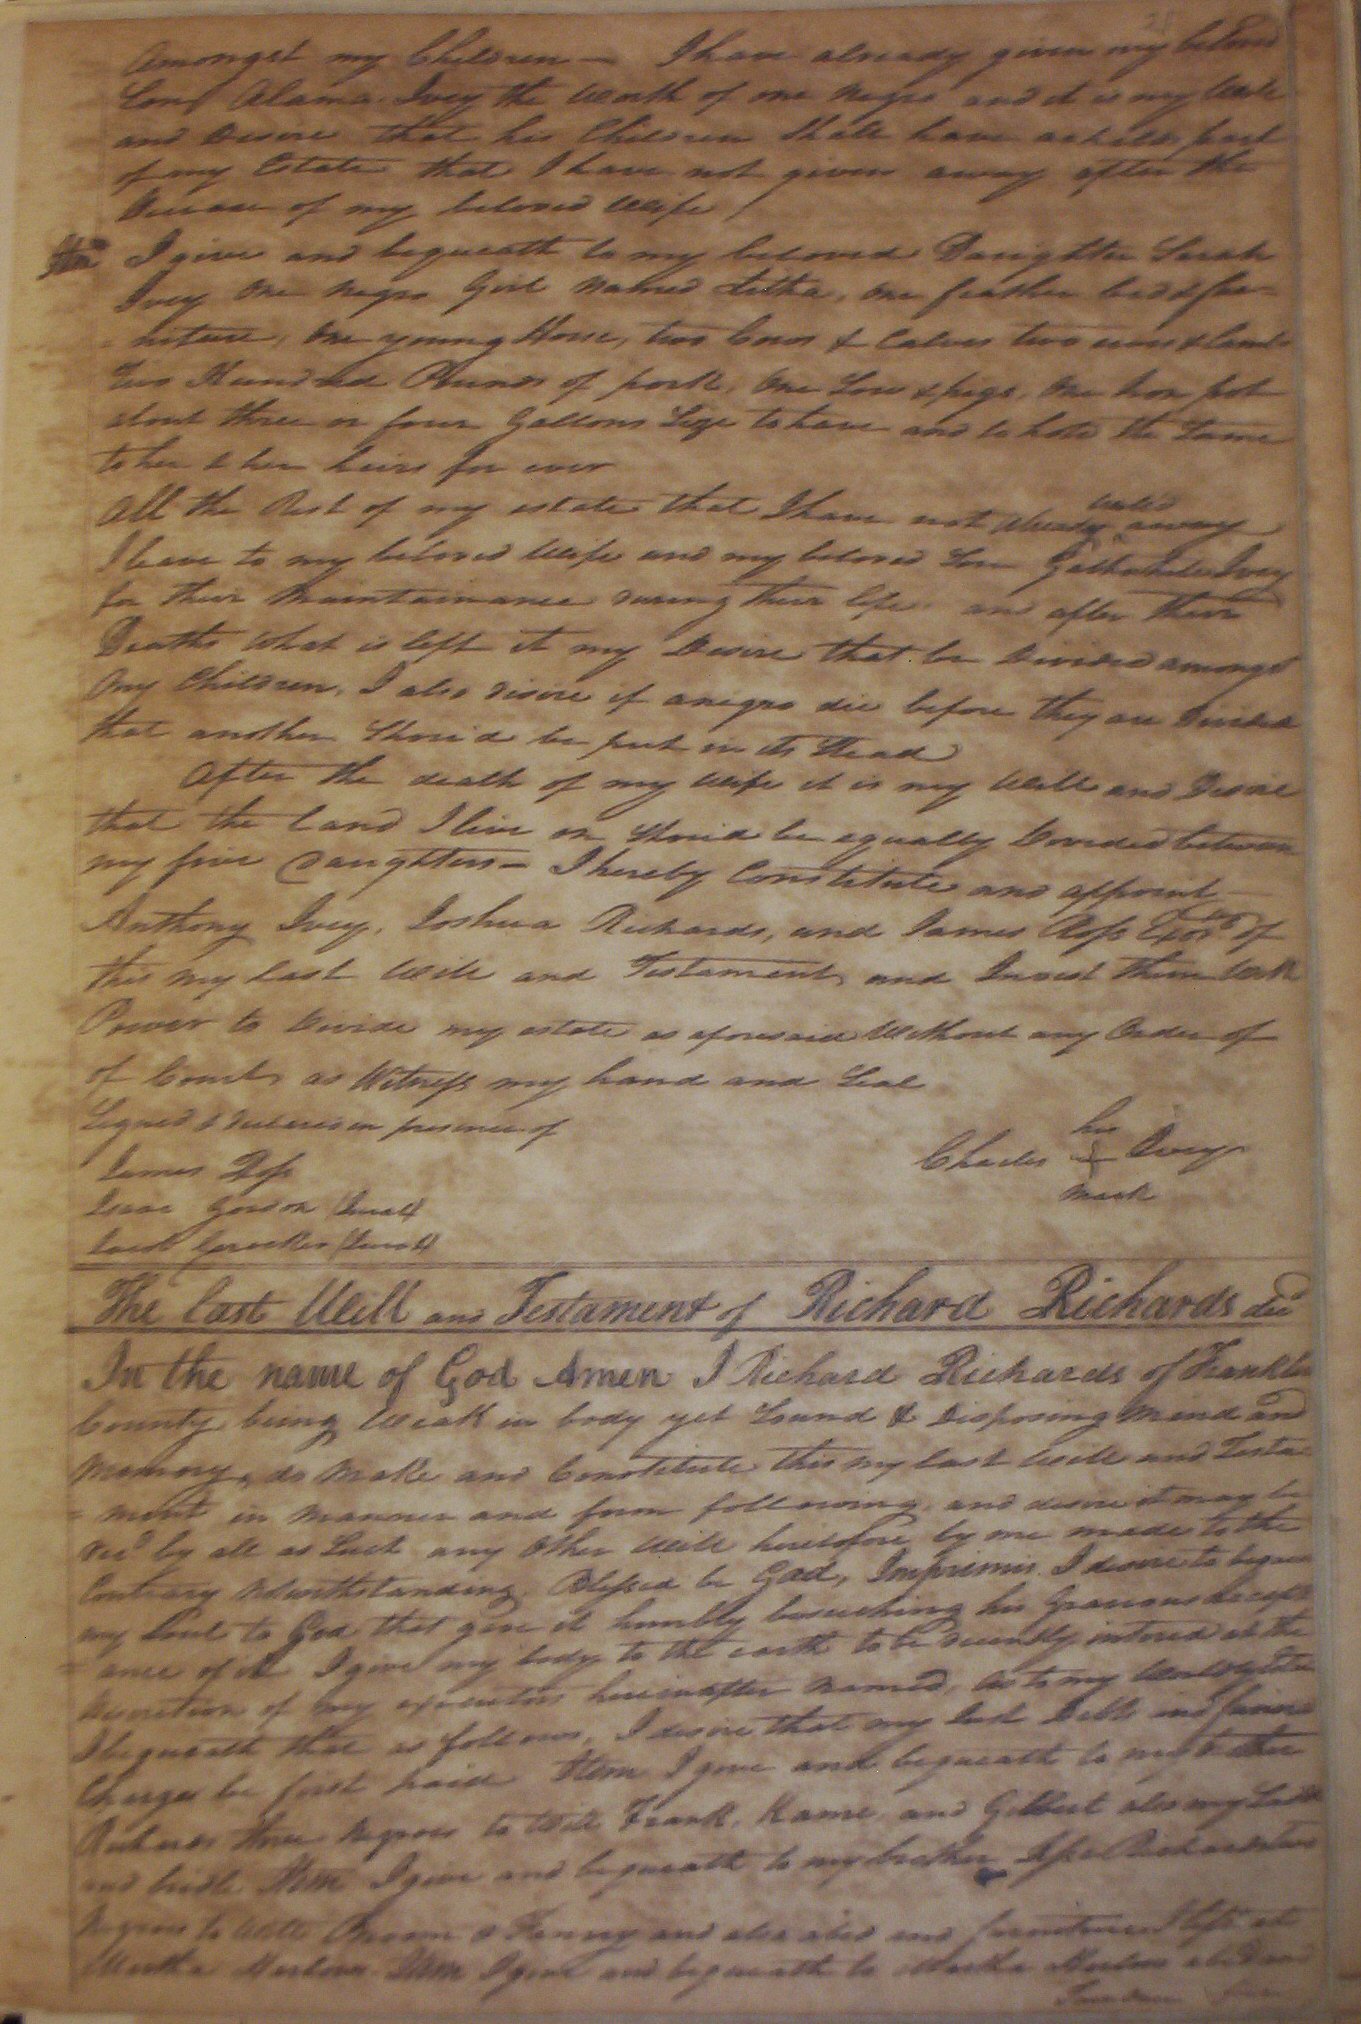 Amongst my Children — I have already given my beloved
Son Adama Ivey the worth of one Negro and it is my Will
and Desire that his Children Shall have a Childs part
of my Estate that I have not given away after the
Decease of my beloved Wife
Item I give and bequeath to my beloved Daughter Sarah
Ivey One Negro Girl Named Litha, One feather bed & fur-
-niture, One young Horse, two Cows & Calves two ewes & lambs
Two Hundred Pounds of pork, One Sow & pigs, One Iron pot
about three or four Gallons Size to have and to hold the Same
to her & her heirs for ever
All the Rest of my estate that I have not already willed away
I leave to my beloved Wife and my beloved Son Ivey
for their Maintainance during their life and after their
Deaths What is left it my Desire that be Divided amongst
my Children, I also desire if a negro die before they are Divided
that another Should be put in its Stead
After the death of my Wife it is my Will and Desire
that the Land I live on Should be equally Divided between
my five Daughters — I hereby Constitute and appoint
Anthony Ivey, Joshua Richards, and James Ross Exors of
this my last Will and Testament, and Invest them With
Power to Divide my estate as aforesaid Without any Order of
of Court, as Witness my hand and Seal
Signed & delivered in presence of
his
Charles Ivey
mark
James Ross
Isaac Gordon (Jurat)
Jacob (Jurat)
The last Will and Testament of Richard Richards decd
In the name of God Amen I Richard Richards of Franklin
County being Weak in body yet Sound & Disposing Mind and
Memory, do Make and Constitute this my last Will and Testa-
-ment in Manner and form following, and desire it may be
recd by all as Such any Other Will heretofore by me made to the
Contrary Notwithstanding. Blessed be God, Imprimis I desire to bequeath
my Soul to God that gave it humbly beseeching his Gracious accept-
-ance of it I give my body to the earth to be decently intered at the
discretion of my executors hereinafter Named, As to my Worldly Estate
I bequeath that as follows, I desire that my Just Debts and funeral
Charges be first paid Item I give and bequeath to my
Richards three Negroes to Will Frank, Kame, and Gilbert also my Saddle
and bridle Item I give and bequeath to my brother Jesse Richards two
Negroes to Will & Fanny and also a bed and furniture I left at
Martha Item I give and bequeath to Martha